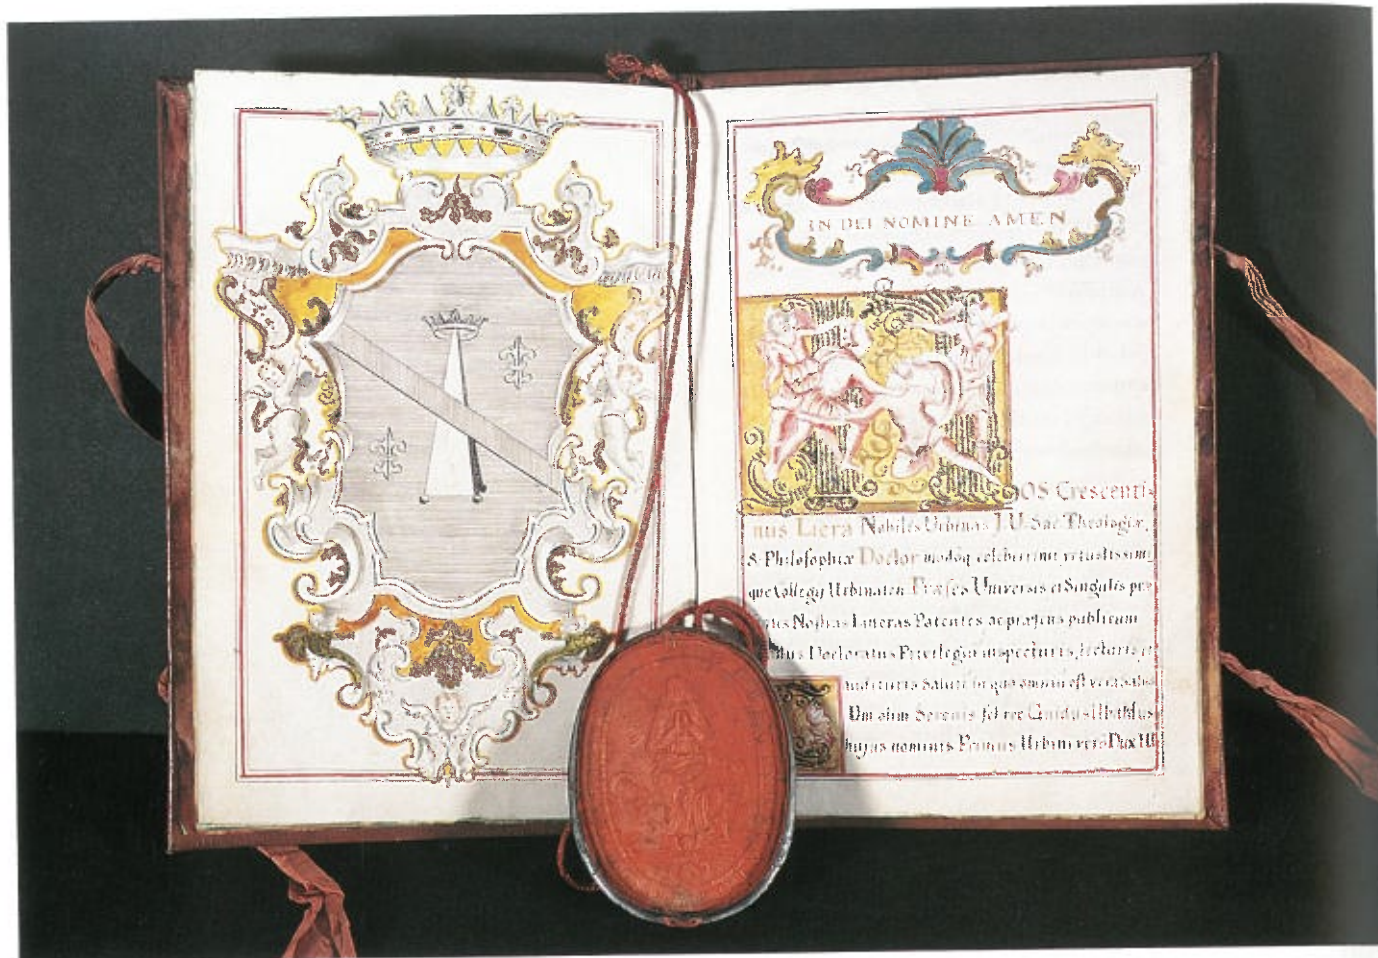 IN DEI NOMINE AMEN
OS Crescenti-
nus Licra Nobilis Urbinas J.U. Sac Theologiæ,
& Philosophiæ Doctor modoq celeberrimi vetustissimi
que Collegÿ Urbinaten Præses Universis et Singulis præ
Nostras Litteras Patentes ac præsens publicum
Doctoratus Privilegiū inspecturis, lecturis
audituris Salutē in quo omniū est vera Salus
Um olim Serenis fel rec Guidus Ubaldus
hujus nominis Primus Urbini verò Dux III